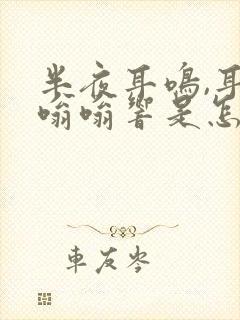 半夜耳鸣,耳
嗡嗡响是怎
车友岑